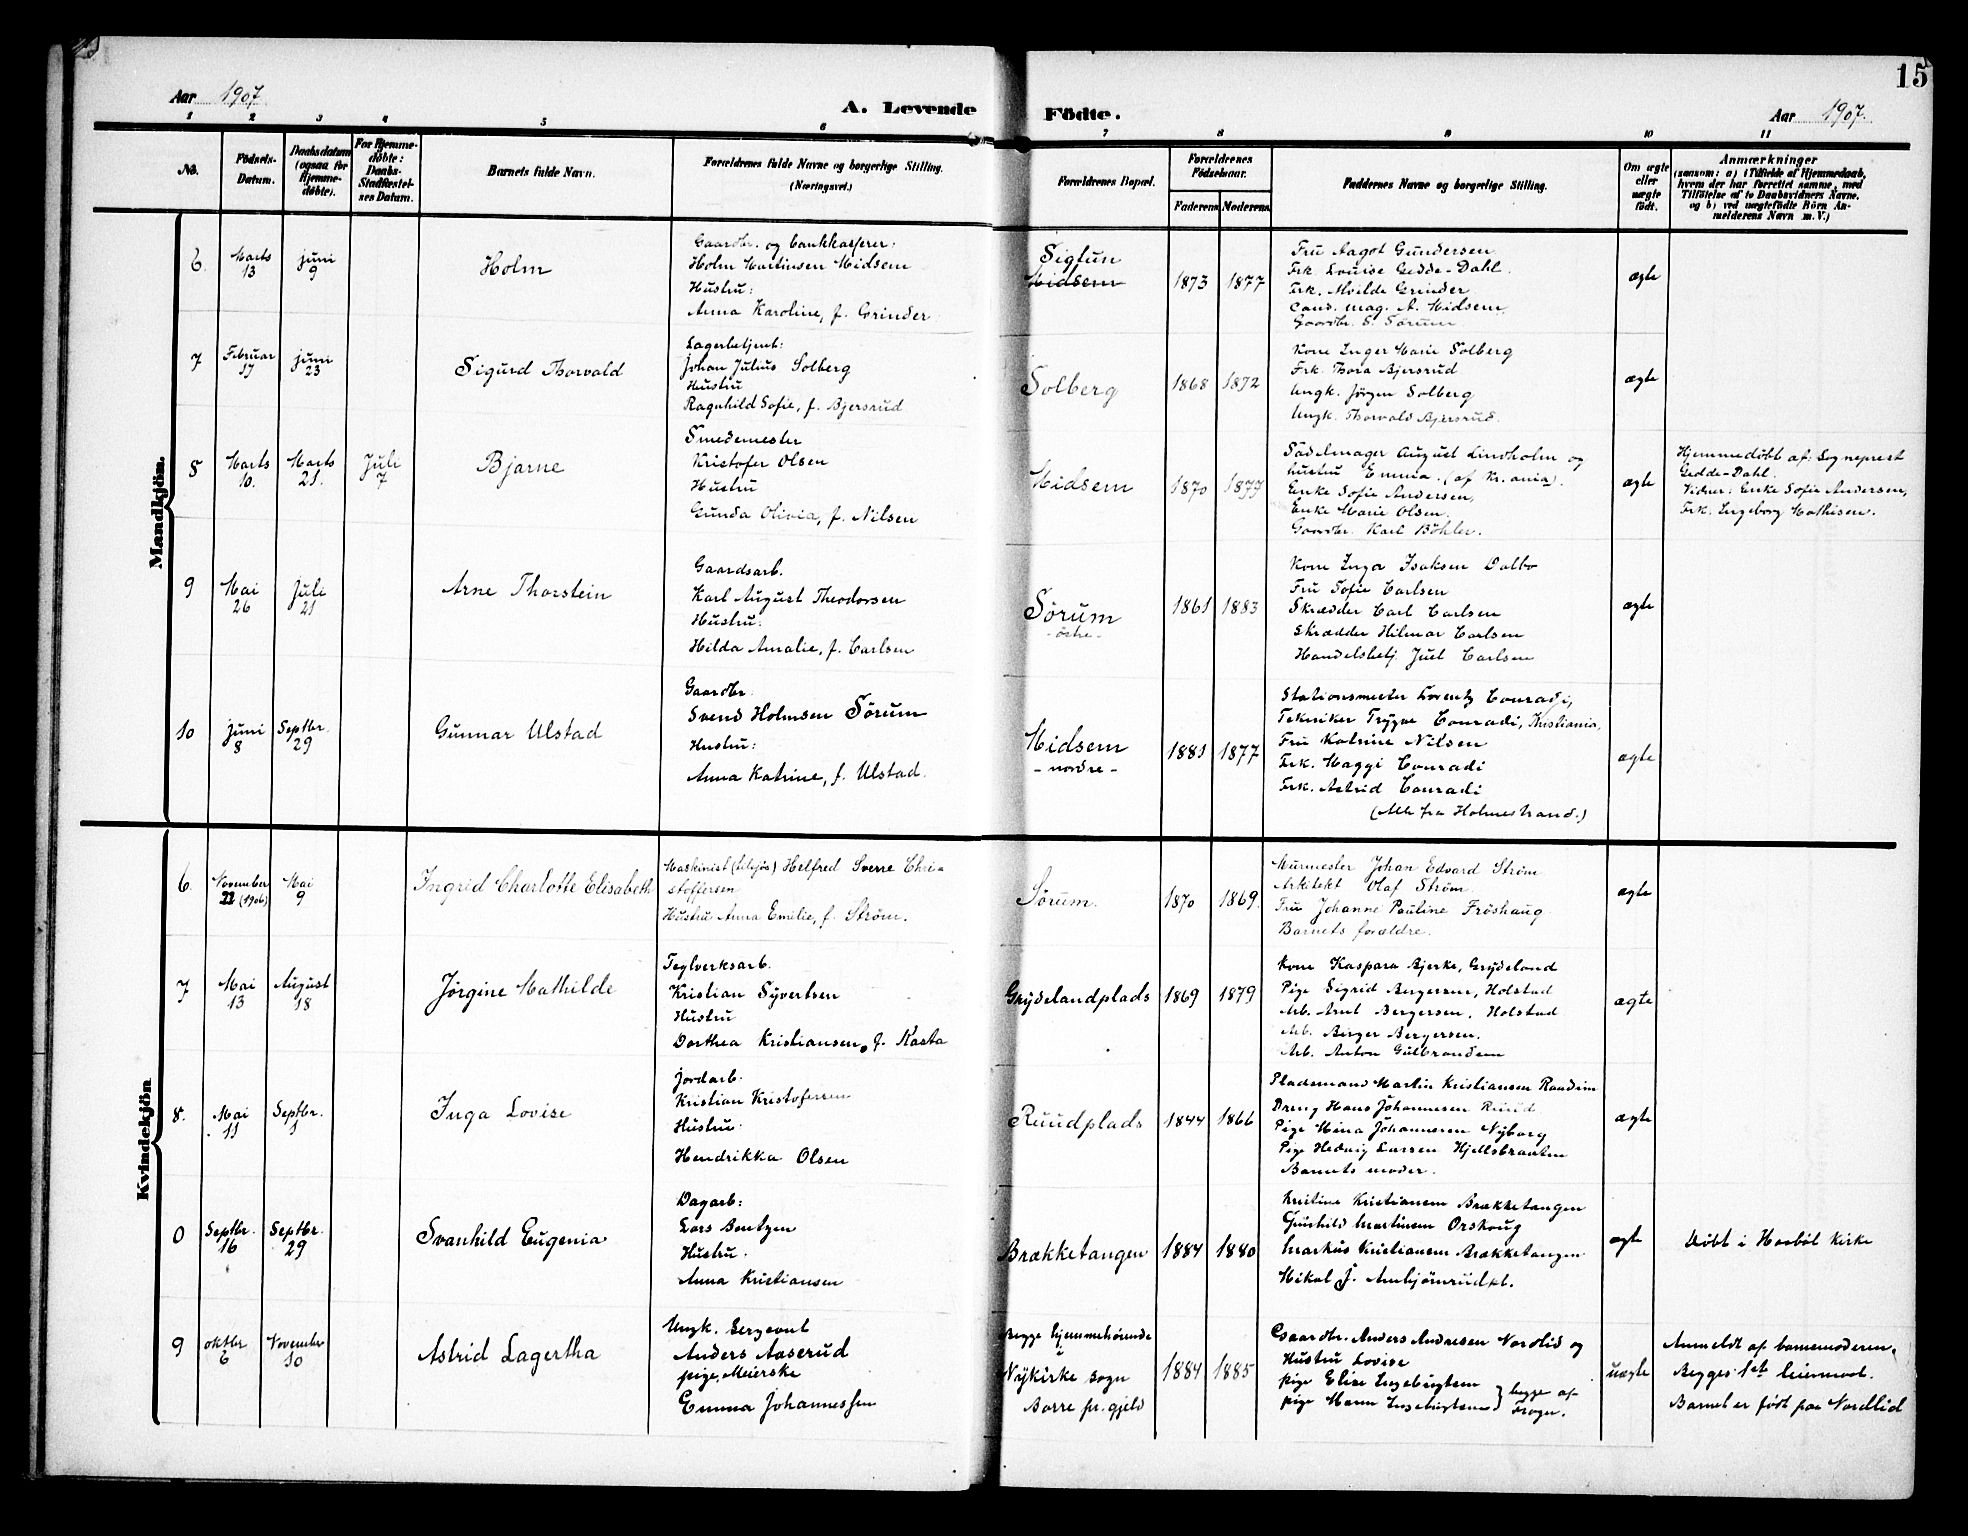 15
Aar 1907
A. Levende Födte.
Aar 1907.
1 2 3 4 5 6 7 8 9 10 11
No.
Födsels-
Datum.
Daabsdatum
(ogsaa for
Hjemme-
döbte).
For Hjemme-
döbte:
Daabs-
Stadfæstel-
ses Datum.
Barnets fulde Navn.
Forældrenes fulde Navne og borgerlige Stilling.
(Næringsvei.)
Forældrenes Bopæl.
Forældrenes
Födselsaar.
Faderens Moderens
Faddernes Navne og borgerlige Stilling.
Om ægte
eller
uægte
födt.
Anmærkninger
(saasom: a) i Tilfælde af Hjemmedaab,
hvem der har forrettet samme, med
Tilföielse af to Daabsvidners Navne.
og b) ved uægtefödte Börn An-
melderens Navn m. V.)
Mandkjön.
6. Marts 13 juni 9
Holm
Gaardbr. og bankkasserer:
Holm Martinsen Midsem
Hustru:
Anna Karoline, f. Grinder
Sigtun
Midsem
1873 1877
Fru Aagot Gundersen
Frk. Louise Gedde-Dahl.
Frk. Alvilde Grinder
Cand. mag. A. Midsem
Gaardbr. S. Sörum
ægte
7 Februar 17 juni 23
Sigurd Thorvald
Lagerbetjent:
Johan Julius Solberg
Hustru
Ragnhild Sofie, f. Bjersrud
Solberg
1868 1872
Kone Inger Marie Solberg
Frk. Thora Bjersrud
Ungk. Jörgen Solberg
Ungk. Thorvald Bjersrud.
ægte
8 Marts 10. Marts 21. Juli 7
Bjarne
Smedemester
Kristofer Olsen
Hustru
Gunda Olivia, f. Nilsen
Midsem
1870 1877
Sadelmager August Lindholm og
hustru Emma. (af Kr.ania).
Enke Sofie Andersen,
Enke Marie Olsen.
Gaardbr. Karl Böhler.
ægte
Hjemmedöbt af: Sogneprest
Gedde-Dahl.
Vidner: Enke Sofie Andersen,
Frk. Ingeborg Mathisen.
9 Mai 26 Juli 21
Arne Thorstein
Gaardsarb.
Karl August Theodorsen
Hustru:
Hilda Amalie, f. Carlsen
Sörum
- östre -
1861 1883
Kone Inga Isaksen Dalbo
Fru Sofie Carlsen
Skrædder Carl Carlsen
Skrædder Hilmar Carlsen
Handelsbetj. Juel Carlsen
ægte
10 juni 8 Septbr. 29
Gunnar Ulstad
Gaardbr.
Svend Holmsen Sörum
Hustru:
Anna Katrine, f. Ulstad.
Midsem
- nordre -
1881 1877
Stationsmester Lorentz Conradi,
Tekniker Trygve Conradi, Kristiania,
Fru Katrine Nilsen
Frk. Maggi Conradi
Frk. Astrid Conradi
(Alle fra Holmestrand.)
ægte
Kvindekjön
6. November 22 (1906) Mai 9
Ingrid Charlotte Elisabeth
Maskinist (tilsjös) Helfred Sverre Chri-
stoffersen
Hustru Anna Emilie, f. Ström.
Sörum.
1870 1869.
Murmester Johan Edvard Ström
Arkitekt Olaf Ström.
Fru Johanne Pauline Fröshaug
Barnets forældre.
ægte
7 Mai 13 August 18
Jörgine Mathilde
Teglverksarb.
Kristian Syvertsen
Hustru
Dorthea Kristiansen, f. Kasta
Grydelandplads
1869 1879
Kone Kaspara Bjerke, Grydeland
Pige Sigrid Bergersen, Holstad
Arb. Arnt Bergersen, Holstad
Arb. Birger Bergersen.
Arb. Anton Gulbrandsen
ægte
8. Mai 11 Septbr. 1
Inga Lovise
Jordarb.
Kristian Kristofersen
Hustru.
Hendrikka Olsen
Ruudplads
1844 1866
Pladsmand Martin Kristiansen Randim
Dreng Hans Johannesen Ruud
Pige Mina Johannesen Nyborg
Pige Hedvig Larsen Hjellsbraaten
Barnets moder.
ægte
0 Septbr. 16 Septbr. 29
Svanhild Eugenia
Dagarb:
Lars Bentzen
Hustru.
Anna Kristiansen
Brækketangen
1884 1880
Kristine Kristiansen Brækketangen
Gunhild Martinsen Orskoug
Markus Kristiansen Brækketangen
Mikal J. Arnbjörnrudpl.
ægte
Döbt i Haaböl Kirke
9 oktbr 6 November 10
Astrid Lagertha
Ungk. Sergeant
Anders Aaserud
pige, Meierske
Emma Johannessen
Begge hjemmehörende
i
Nykirke sogn
Borre pr.gjeld
1884 1885
Gaardbr. Anders Andresen Nordlid og
Hustru Lovise
pige Elise Ingebrigtsen
pige Marn Ingebrigtsen } begge af
Frogn.
uægte
Anmeldt af barnemoderen.
Begges 1ste leiermaal.
Barnet er födt paa Nordlid